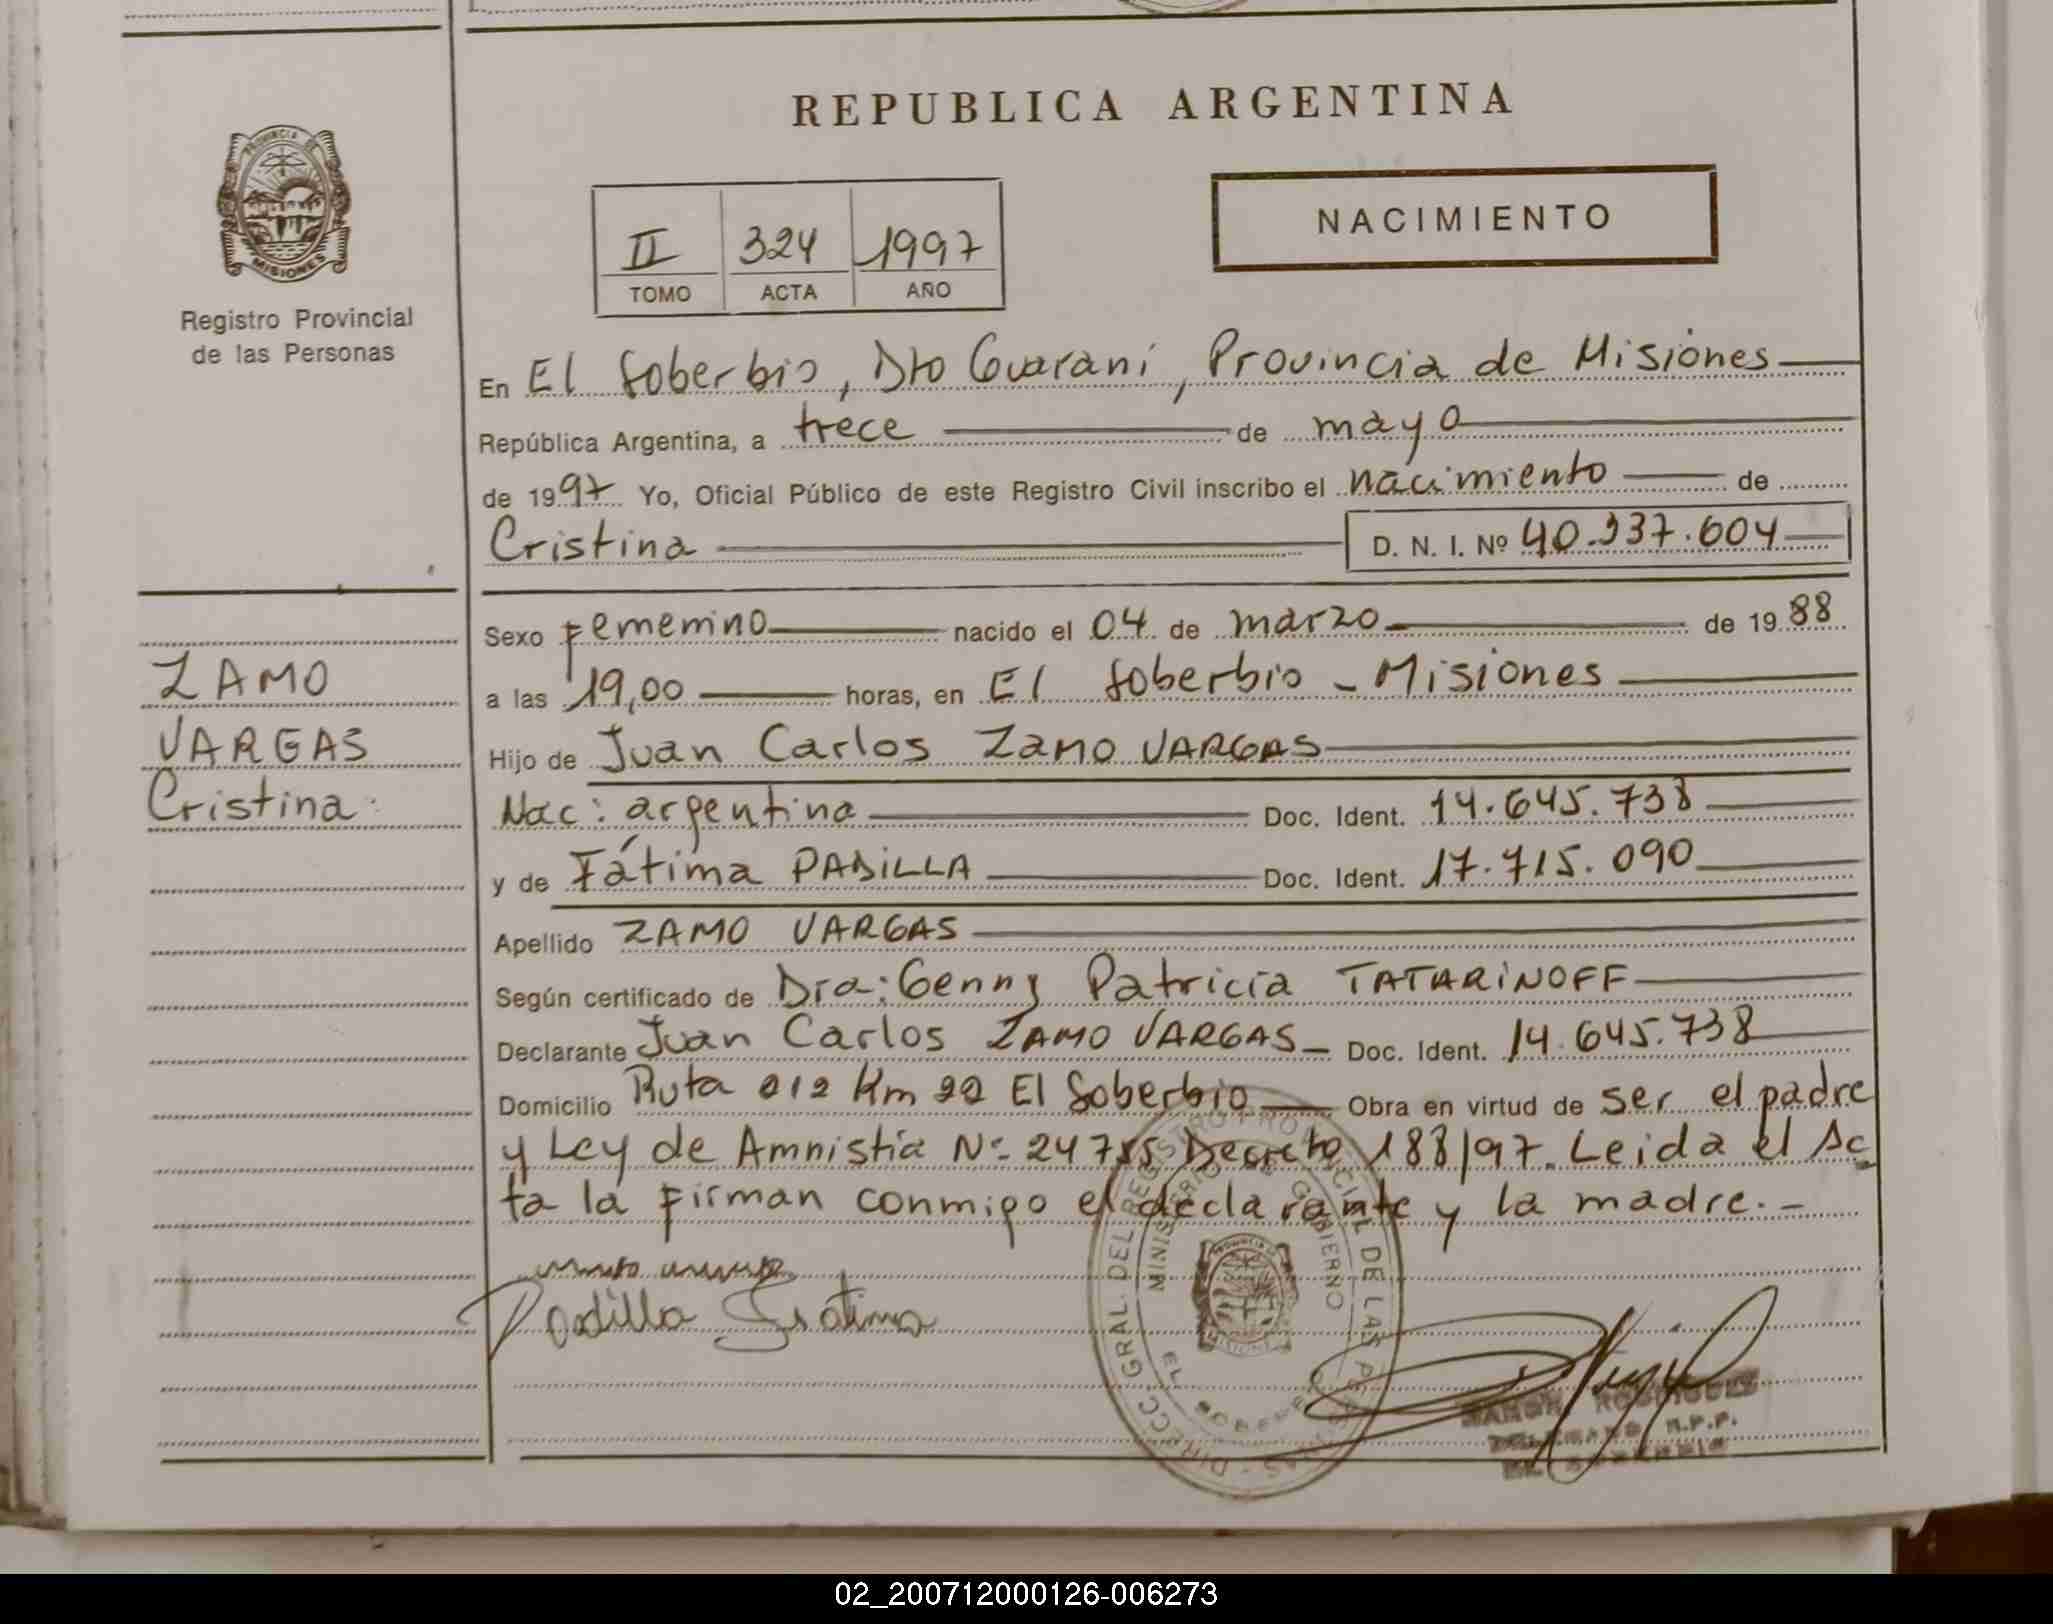 REPUBLICA ARGENTINA
PROVINCIA DE
MISIONES
Registro Provincial
de las Personas
NACIMIENTO
II 324 1997
TOMO ACTA AÑO
En El Soberbio, Dto Guaraní, Provincia de Misiones
República Argentina, a trece de mayo
de 1997 Yo, Oficial Público de este Registro Civil inscribo el nacimiento de
Cristina D. N. I. Nº 40.337.604
Sexo Femenino nacido el 04 de marzo de 1988
ZAMO
VARGAS
Cristina
a las 19,00 horas, en El Soberbio - Misiones
Hijo de Juan Carlos ZAMO VARGAS
Nac: argentina Doc. Ident. 14.645.738
y de Fátima PADILLA Doc. Ident. 17.715.090
Apellido ZAMO VARGAS
Según certificado de Dra: Genny Patricia TATARINOFF
Declarante Juan Carlos ZAMO VARGAS - Doc. Ident. 14.645.738
Domicilio Ruta 212 Km 20 El Soberbio Obra en virtud de ser el padre
y Ley de Amnistía Nº 24755 Decreto 188/97. Leida el Ac
ta la firman conmigo el declarante y la madre.-
Padilla Fatima
DIRECC. GRAL. DEL REGISTRO PROVINCIAL DE LAS PERSONAS
MINISTERIO DE GOBIERNO
EL SOBERBIO
RAMON RODRIGUEZ
DELEGADO R.P.P.
EL SOBERBIO
02_200712000126-006273